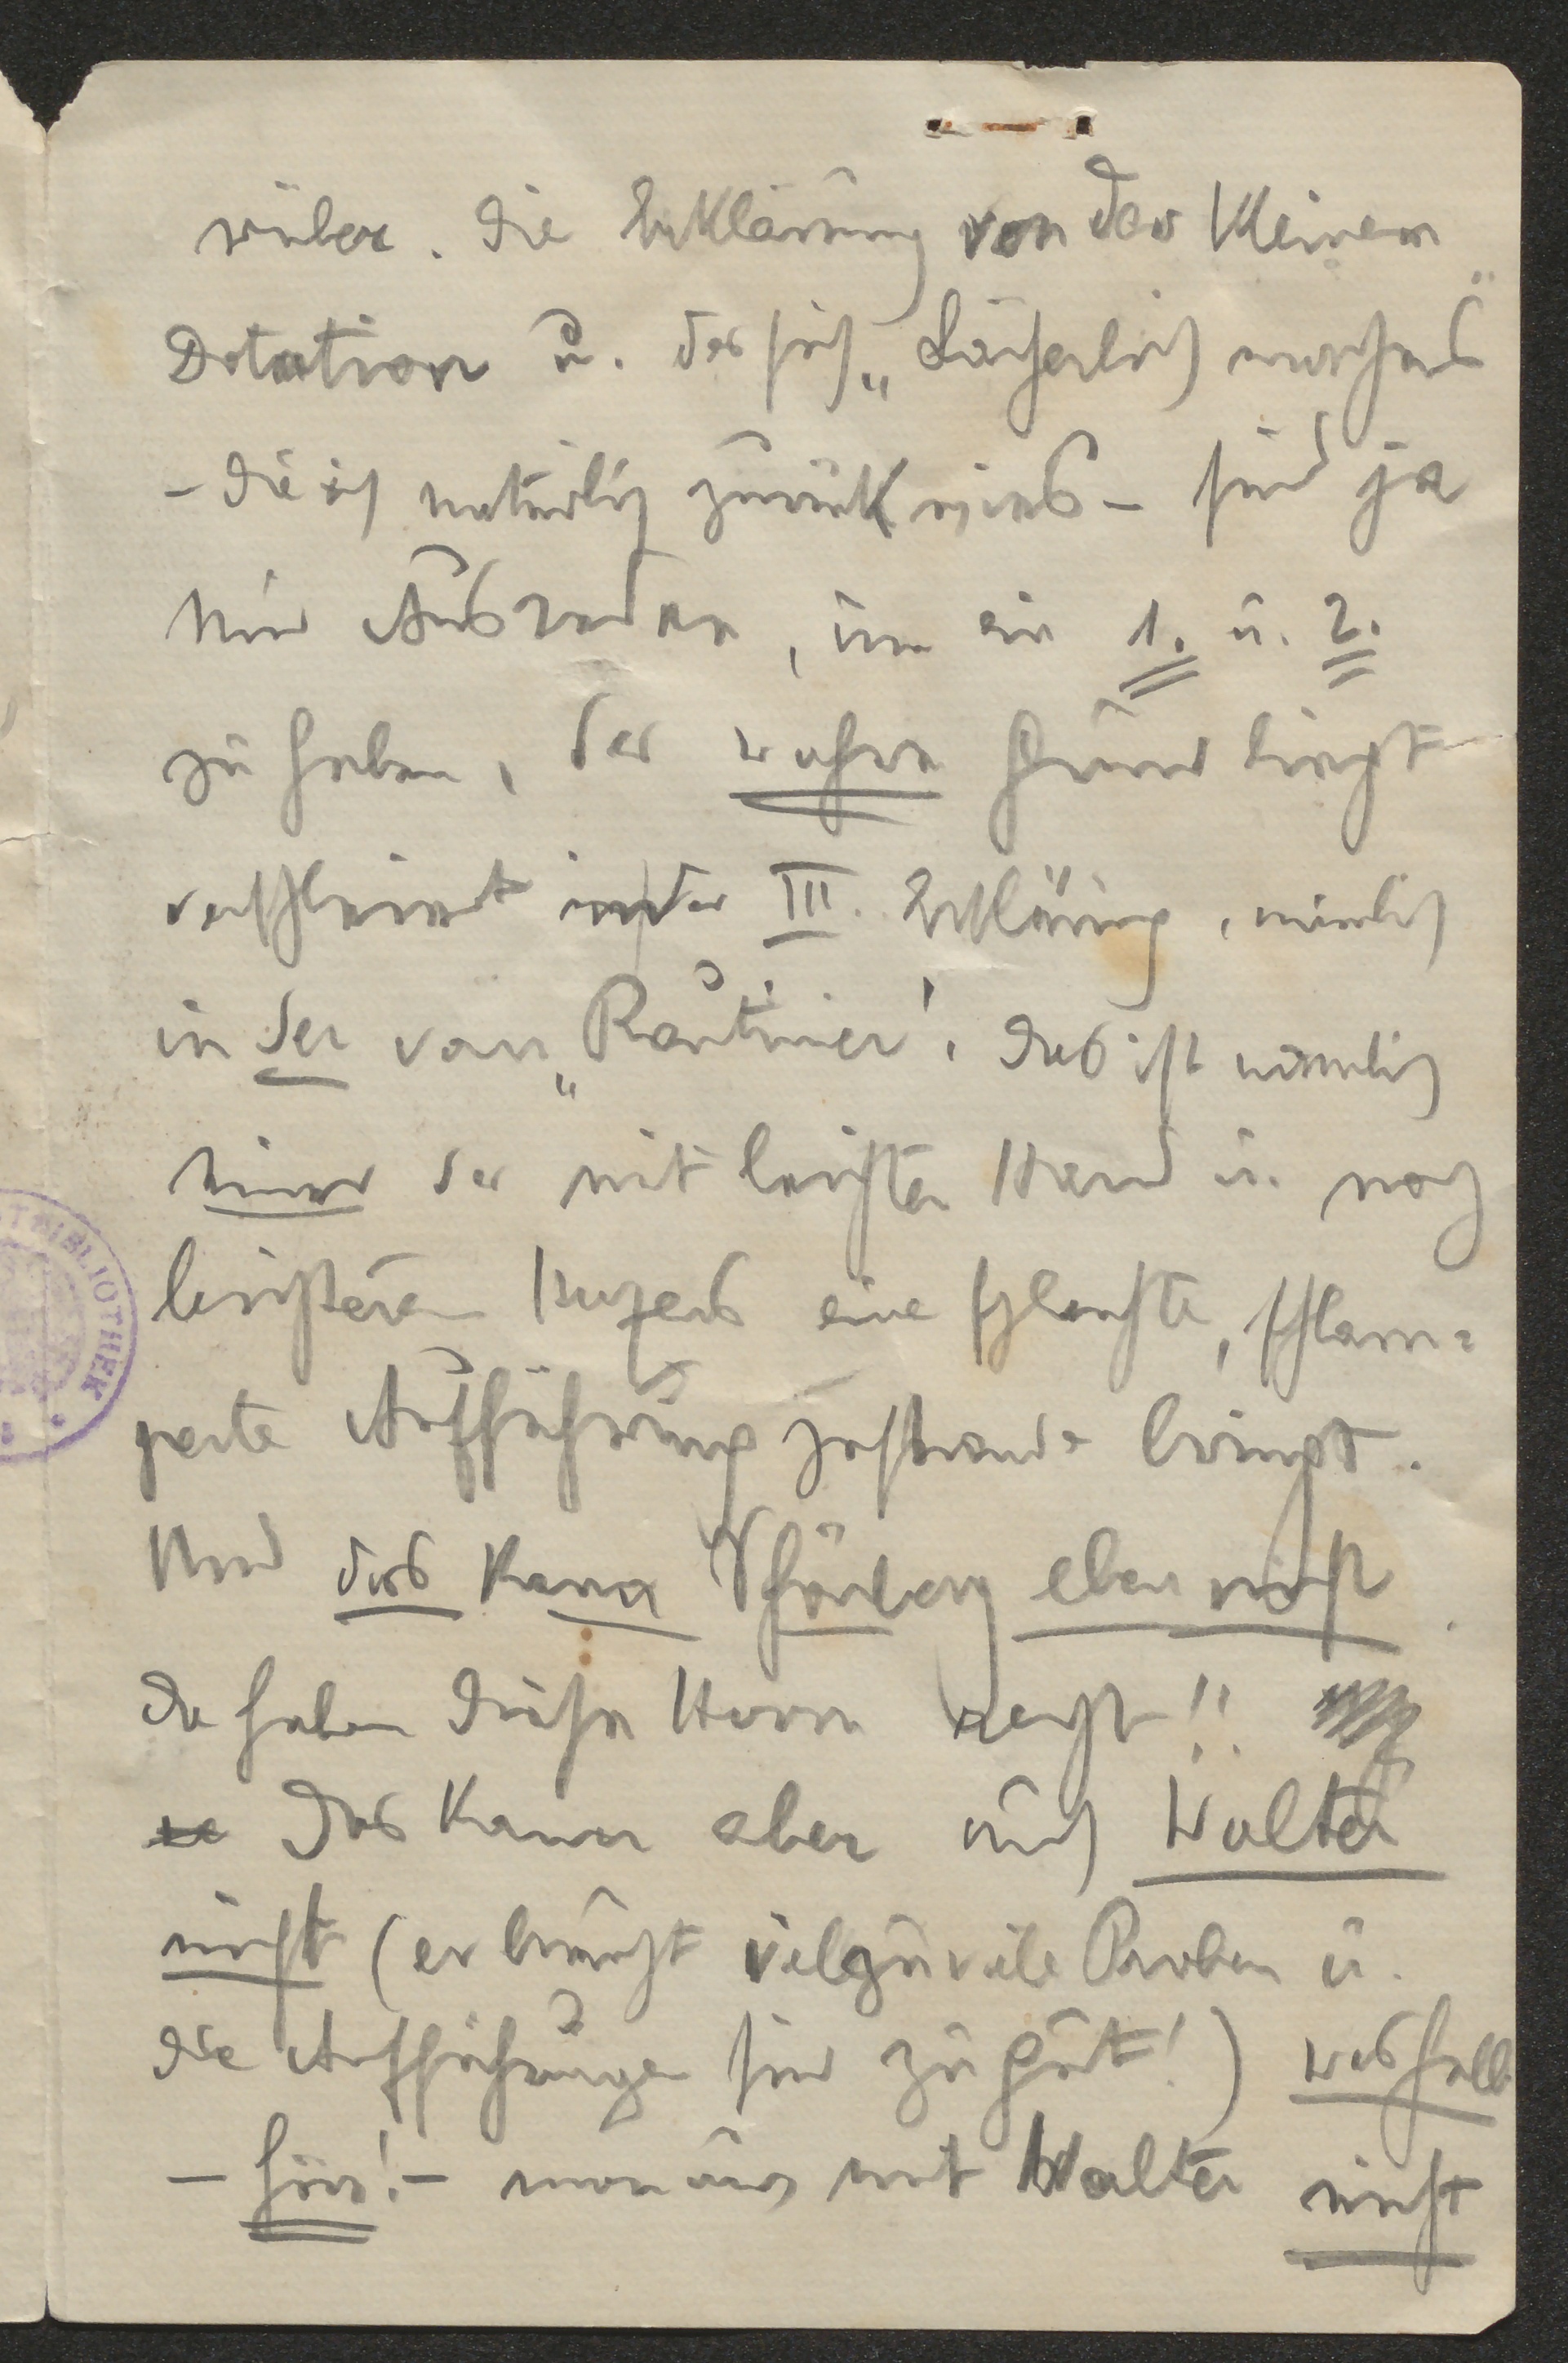 rüber. Die Erklärung von der kleinen
Dotation u. des sich „Lächerlich machens"
– die ich natürlich zurückwies – sind ja
nur Ausreden, um ein 1. u. 2.
zu haben, der wahre Grund liegt
verschleiert in der III. Erklärung, nämlich
in der von „Routinier". Das ist nämlich
einer der mit leichter Hand u. noch
leichteren Herzens eine schlechte, schlam=
perte Aufführung zustande bringt.
Und das kann Schönberg eben nicht
Da haben diese Herrn recht!!
Das kann aber auch Walter
nicht (er braucht viel zu viele Proben u.
die Aufführungen sind zu gut!) weshalb
– hör! – man auch mit Walter nicht
BIBLIOTHEK